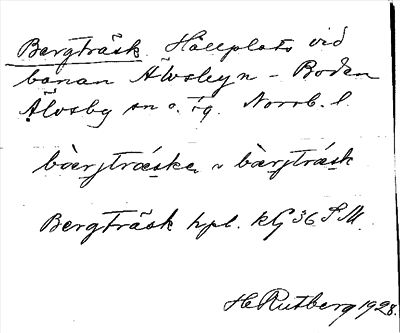 Bergträsk. Hållplats vid
banan Älvsbyn – Boden
Älvsby sn o. Norrb. l.
bærjtræske ~ bærjträsk
Bergträsk hpl. kG 36 SM.
H Rutberg 1928.